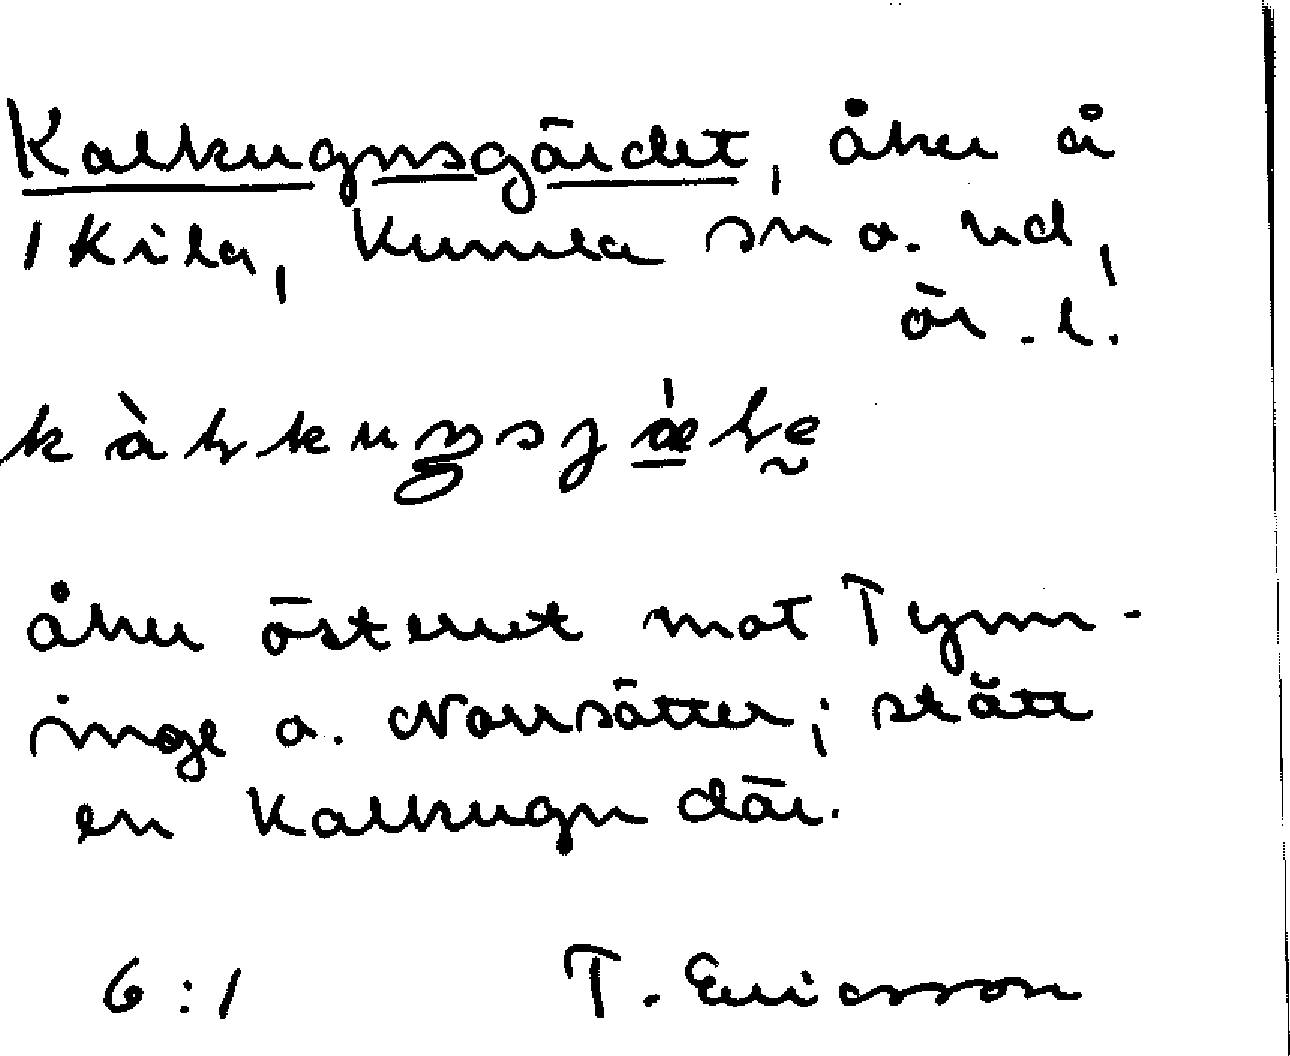 Kalkugnsgärdet, åker å
1 Kila, Kumla sn o. hd,
ör. l.
åker österut mot Tynn-
inge o. Norrsätter; stått
en Kalkugn där.
6:1 T. Ericsson